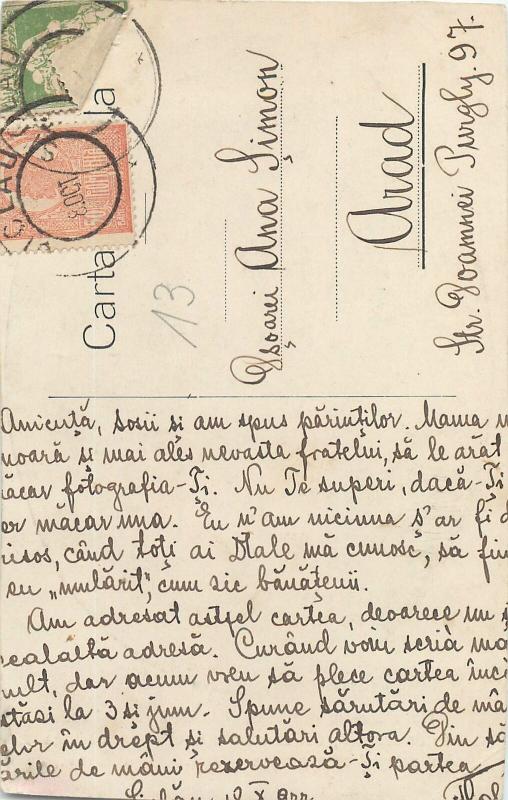 Carta
la
13
Dșoarei Ana Șimon
Arad
Str. Doamnei Purgly. 97.
Amicuță, sosii si am spus părinților. Mama
noară și mai ales nevasta fratelui, să le arăt
ăcar fotografia-Ți. Nu Te superi, dacă-Ți
er măcar una. Eu n'am niciuna s'ar fi
risos, când toți ai Dtale mă cunosc, să fiu
eu „mulărit", cum zic bănățenii.
Am adresat astfel cartea, deoarece nu
cealaltă adresă. Curând voiu scria
ult, dar acum vreu să plece cartea încă
stăsi la 3 si jum. Spune sărutări de mâ
elor în drept si salutări altora. Din să
ările de mâni rezervează-Ți partea